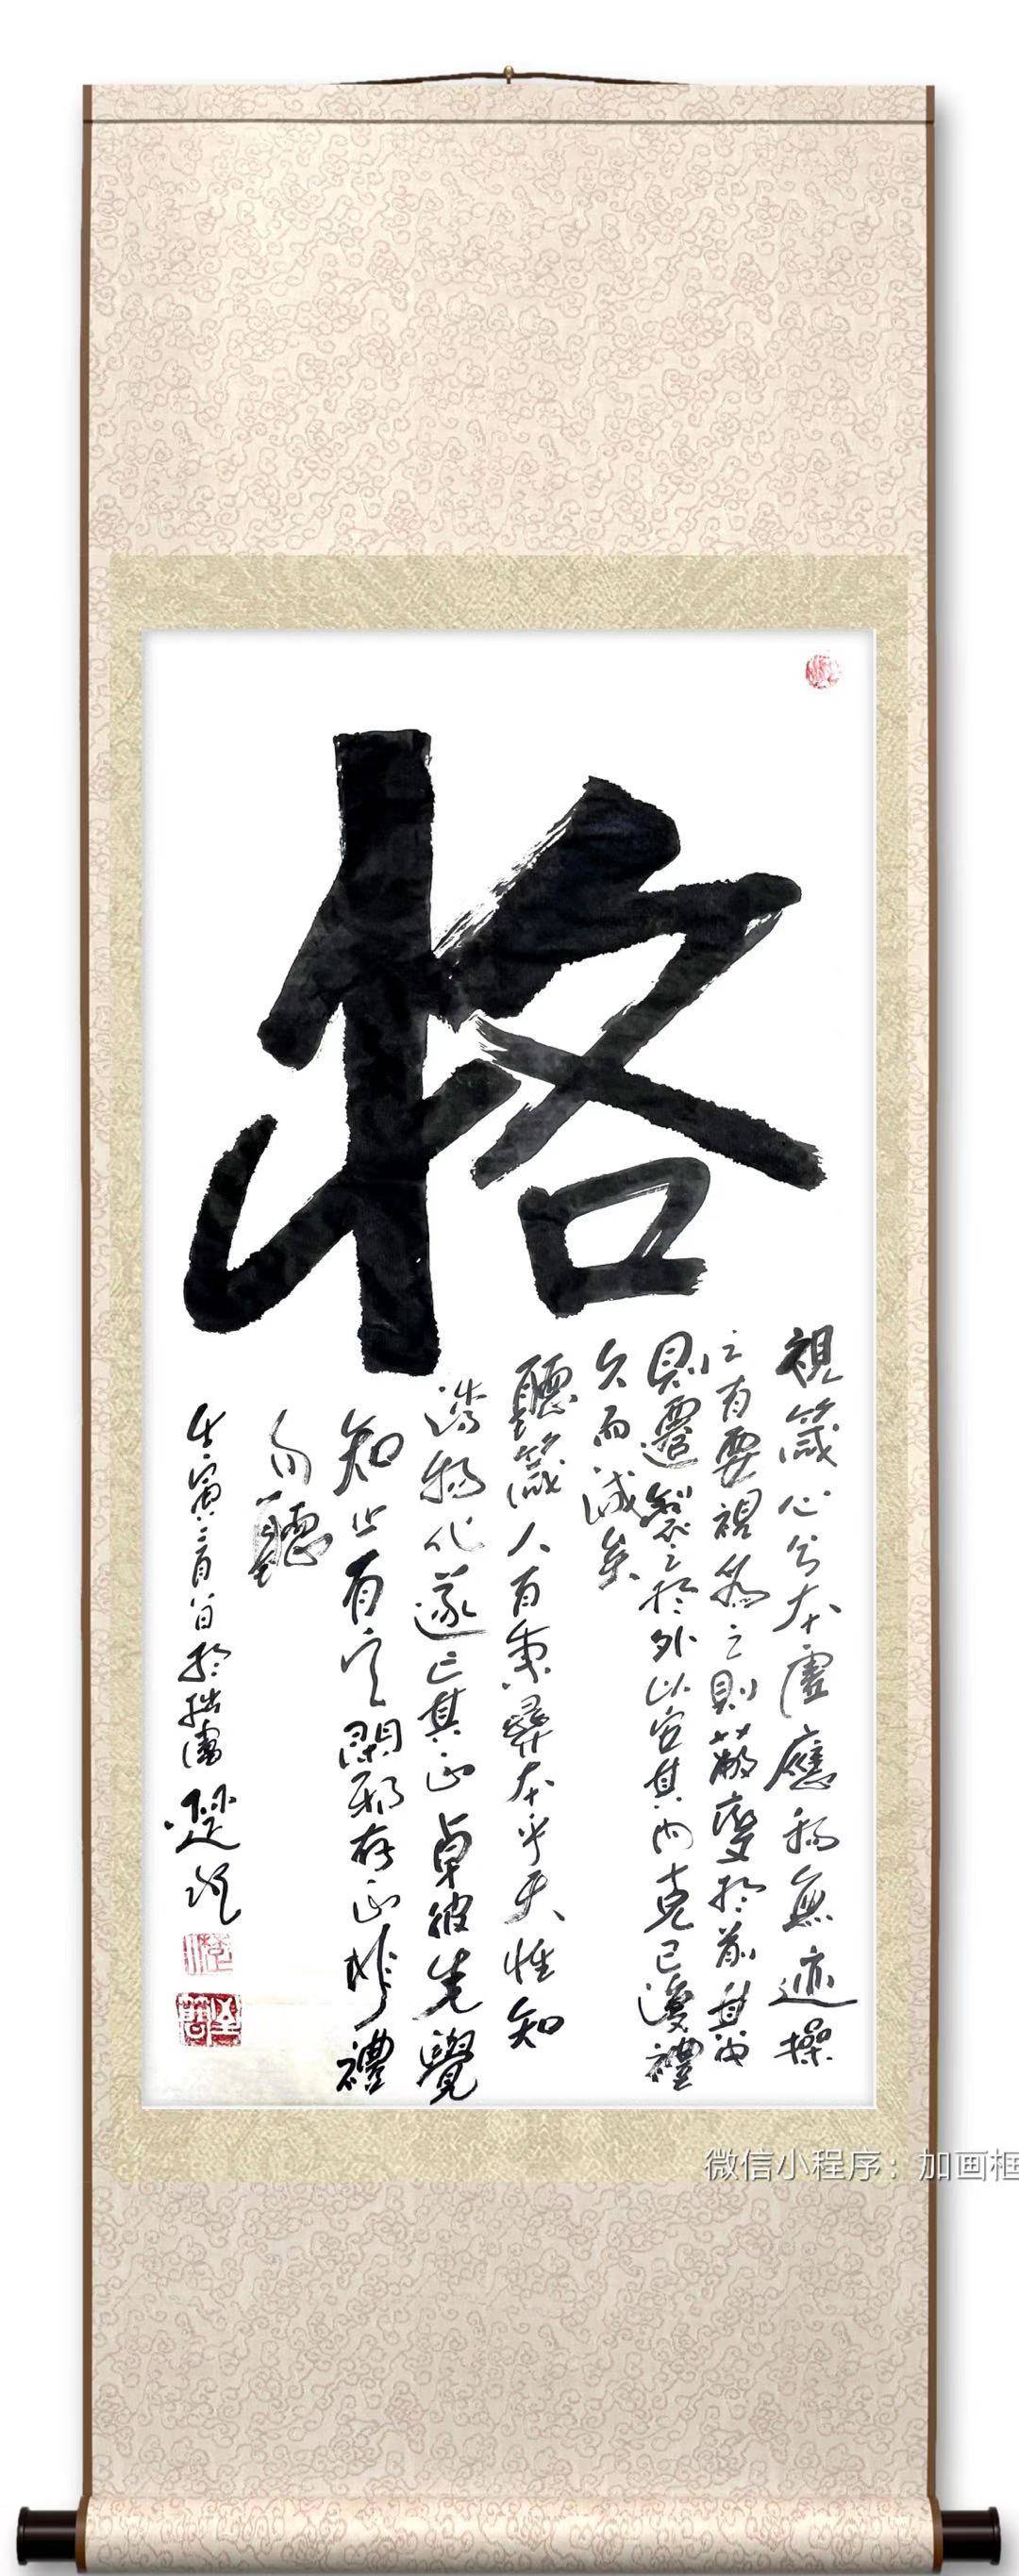 格
視箴心兮本虛應物無迹操
之有要視為之則蔽交於前其中
則遷製之於外以安其內克己復禮
久而誠矣
聽箴人有秉彝本乎天性知
誘物化遂亡其正卓彼先覺
知止有定閑邪存正非禮
勿聽
寅三月 於拙 楚
微信小程序：加画框